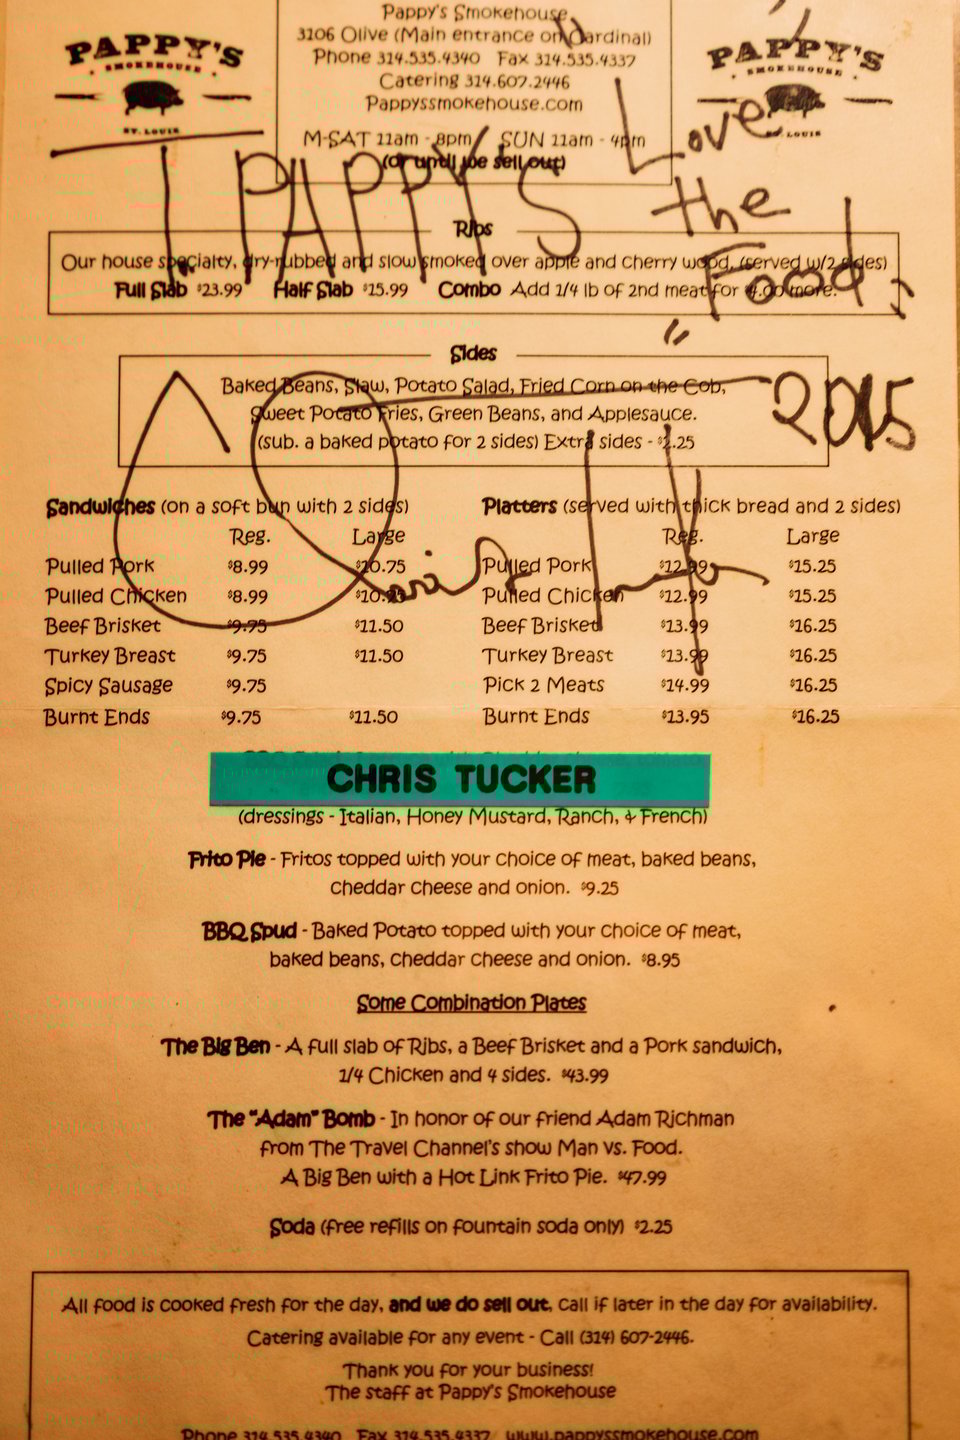 PAPPY'S
SMOKEHOUSE
ST. LOUIS
Pappy's Smokehouse
3106 Olive (Main entrance on Cardinal)
Phone 314.535.4340 Fax 314.535.4337
Catering 314.607.2446
Pappyssmokehouse.com
M-SAT 11am - 8pm SUN 11am - 4pm
(or until we sell out)
PAPPY'S
SMOKEHOUSE
ST. LOUIS
PAPPY'S
Love
the
Food
2015
Ribs
Our house specialty, dry-rubbed and slow smoked over apple and cherry wood. (served w/2 sides)
Full Slab $23.99 Half Slab $15.99 Combo Add 1/4 lb of 2nd meat for $4.00 more.
Sides
Baked Beans, Slaw, Potato Salad, Fried Corn on the Cob,
Sweet Potato Fries, Green Beans, and Applesauce.
(sub. a baked potato for 2 sides) Extra sides - $2.25
Sandwiches (on a soft bun with 2 sides)
Reg. Large
Pulled Pork $8.99 $10.75
Pulled Chicken $8.99
Beef Brisket $9.75 $11.50
Turkey Breast $9.75 $11.50
Spicy Sausage $9.75
Burnt Ends $9.75 $11.50
Platters (served with thick bread and 2 sides)
Reg. Large
Pulled Pork $12.99 $15.25
Pulled Chicken $12.99 $15.25
Beef Brisket $13.99 $16.25
Turkey Breast $13.99 $16.25
Pick 2 Meats $14.99 $16.25
Burnt Ends $13.95 $16.25
CHRIS TUCKER
(dressings - Italian, Honey Mustard, Ranch, & French)
Frito Pie - Fritos topped with your choice of meat, baked beans,
cheddar cheese and onion. $9.25
BBQ Spud - Baked Potato topped with your choice of meat,
baked beans, cheddar cheese and onion. $8.95
Some Combination Plates
The Big Ben - A full slab of Ribs, a Beef Brisket and a Pork sandwich,
1/4 Chicken and 4 sides. $43.99
The "Adam" Bomb - In honor of our friend Adam Richman
from The Travel Channel's show Man vs. Food.
A Big Ben with a Hot Link Frito Pie. $47.99
Soda (free refills on fountain soda only) $2.25
All food is cooked fresh for the day, and we do sell out, call if later in the day for availability.
Catering available for any event - Call (314) 607-2446.
Thank you for your business!
The staff at Pappy's Smokehouse
Phone 314.535.4340 Fax 314.535.4337 www.pappyssmokehouse.com